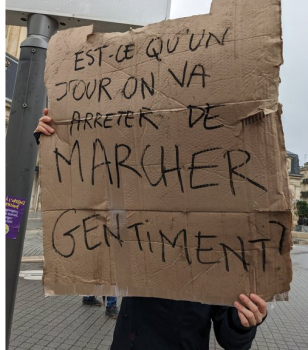 EST-CE QU'UN
JOUR ON VA
ARRETER DE
MARCHER
GENTIMENT?